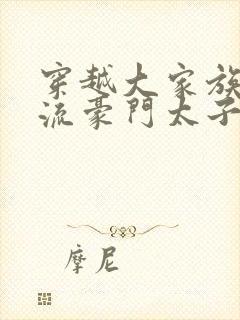 穿越大家族
流豪門太子
摩尼